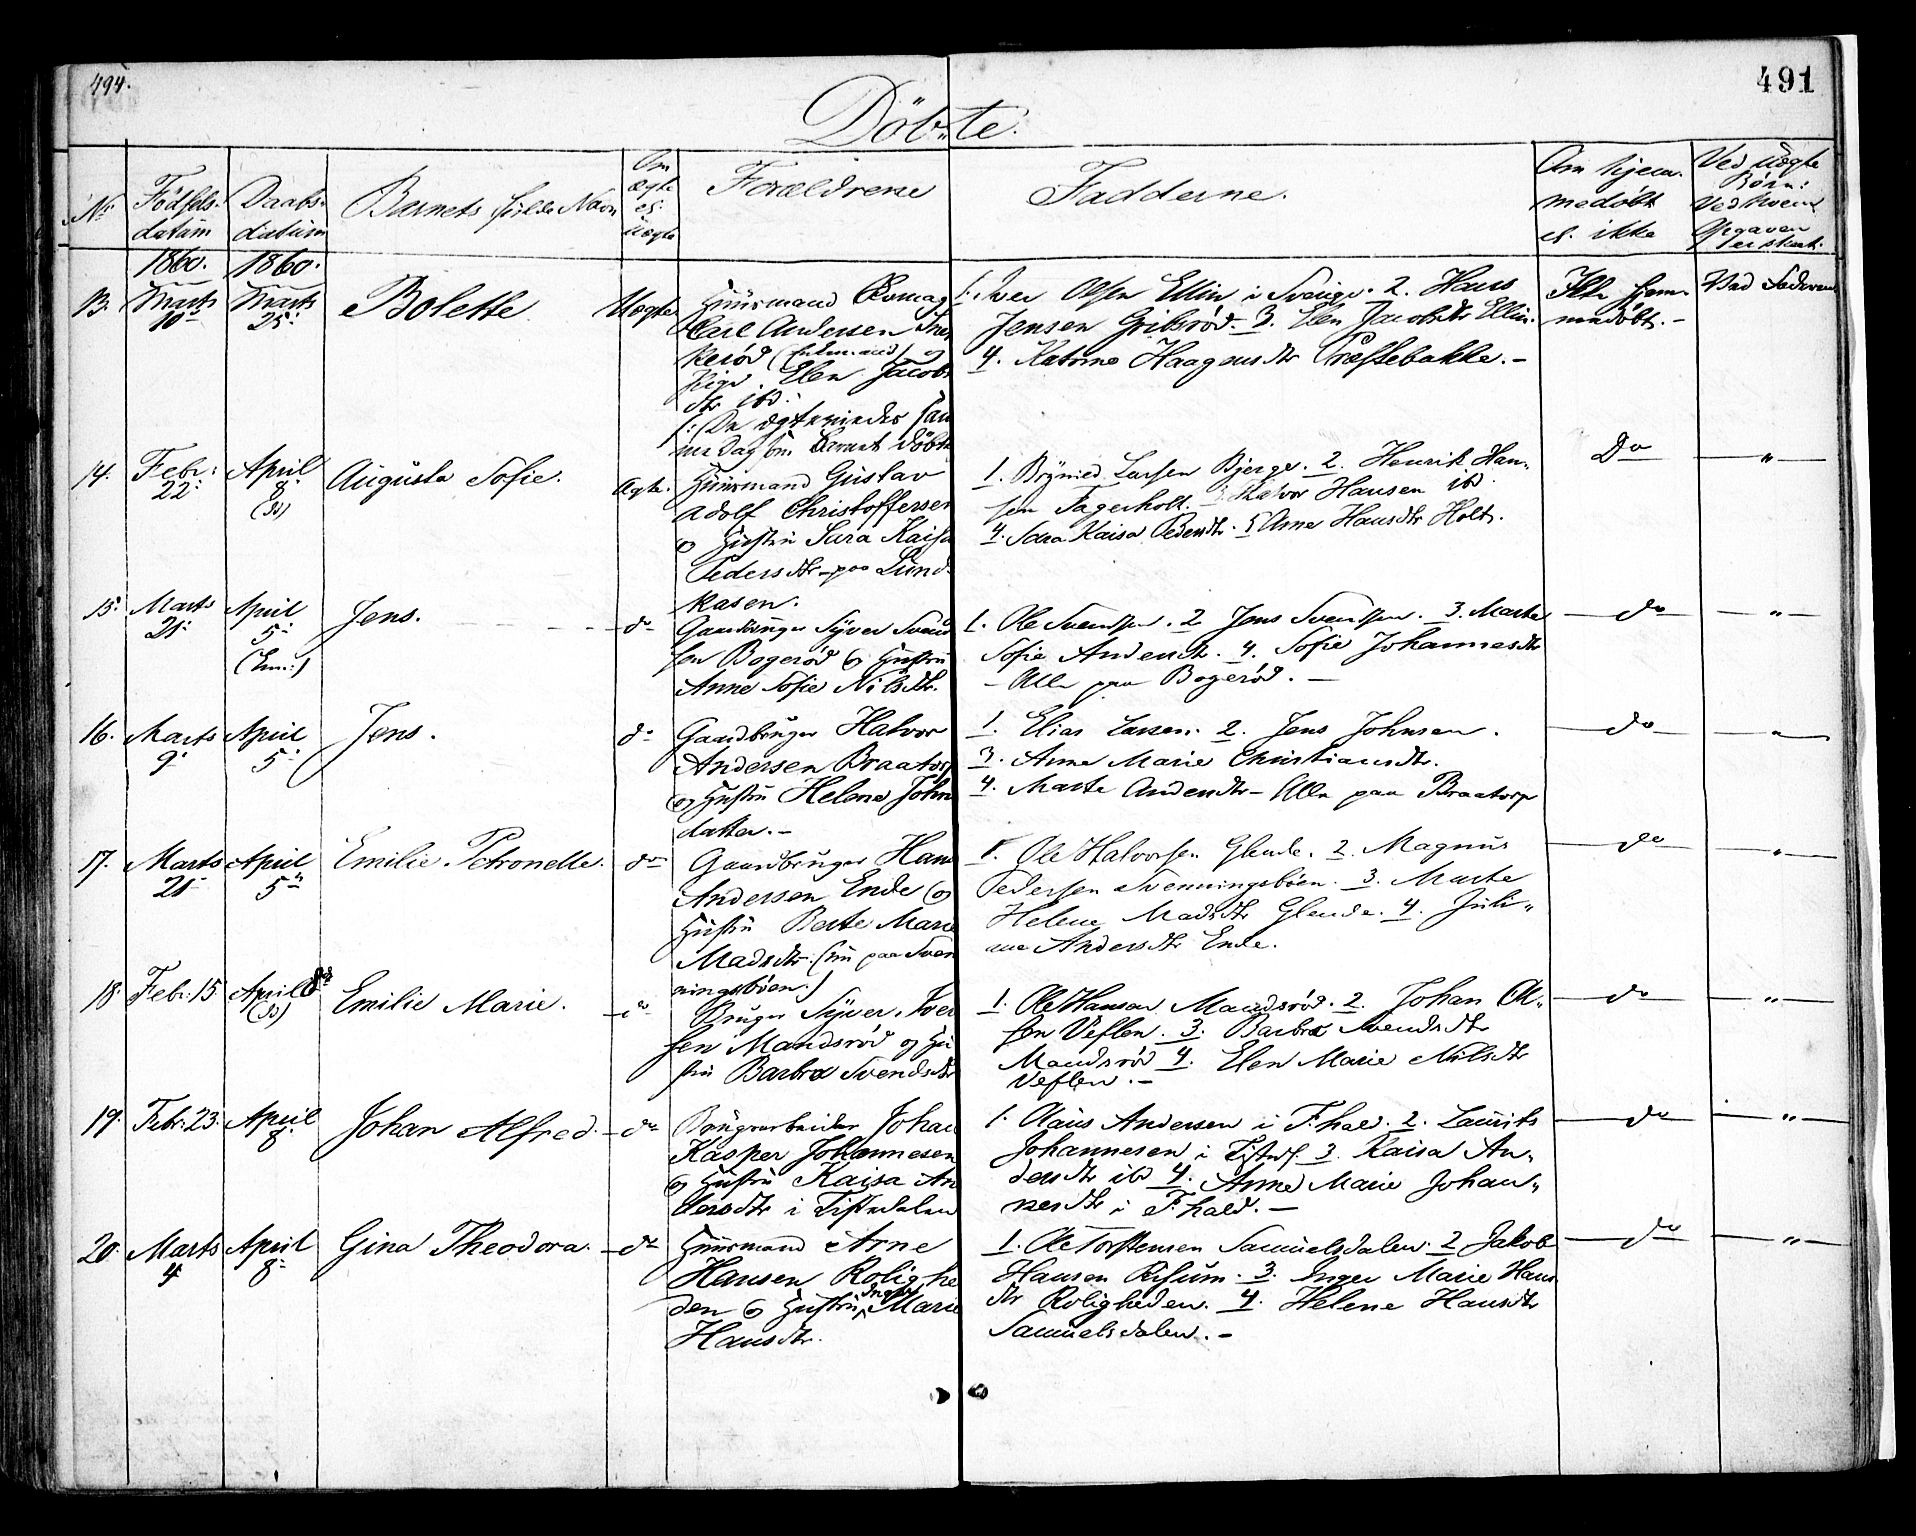 494.
491
Döbte.
No.
Födsels-
datum
Daabs-
datum
Barnets fulde Navn
Om
ægte
el.
Uægte
Forældrene
Fadderne.
Om hjem-
medøbt
el. ikke
Ved Uægte
Børn:
Ved hvem
Opgaven
er skeet.
1860. 1860.
13. Marts
10
Marts
25
Bolette.
Uægte
Huusmand
Carl Andersen
kerød (Enkemand) og
Pige. Elen Jacobs
dtr ibd.
/: De ægteviedes sam
me Dag som Barnet döbtes
1. Iver Olsen Ellin i Sverige. 2. Hans
Jensen Grilsrød. 3. Elen Jacobsdtr Ellin.
4. Katrine Haagensdtr Præstebakke. -
Ikke hjem-
medøbt. -
Ved Faderen
14. Febr:
22
April
8
Augusta Sofie.
Ægte.
Huusmand Gustav
Adolf Christoffersen
og Hustru Sara Kaisa
Pedersdtr - paa Lund-
kasen.
1. Larsen Bjerge. 2. Henrik Han-
sen Fagerholt. Halvor Hansen ibd.
4. Sara Kaisa Pedersdtr. 5 Anne Hansdtr Holt.
Do
"
15. Marts
21
April
5
Jens.
do
Gaardbruger Syver Svend
sen Bogerød og Hustru
Anne Sofie Nilsdtr.
1. Ole Svendsen. 2 Jens Svendsen. 3. Marte
Sofie Andersdtr. 4. Sofie Johannesdtr
- Alle paa Bogerød. -
do
"
16. Marts
9
April
5
Jens.
do
Gaardbruger Halvor
Andersen Braatorp
og Hustru Helene John
datter. -
1. Elias Larsen. 2. Jens Johnsen.
3. Anne Marie Christiansdtr.
4. Marte Andersdtr - Alle paa Braatorp
do
"
17. Marts
21
April
5
Emilie Petronelle.
do
Gaardbruger Hans
Andersen Ende og
Hustru Berte Marie
Madsdtr. (nu paa Sven
ningsbøen.)
1. Ole Halvorsen Glende. 2. Magnus
Pedersen Svenningsbøen. 3. Marte
Helene Madsdtr Glende. 4. Juli-
ane Andersdtr Ende.
do
"
18. Febr. 15.
April 8
Emilie Marie.
do
Bruger Syver Iver
sen Mandsrød og Hu
stru Barbra Svendsdtr
1. Ole Hansen Mandsrød. 2. Johan Ol-
sen Veflen. 3. Barbra Svendsdtr
Mandsrød 4. Elen Marie Nilsdtr
Veflen. -
do
"
19. Febr: 23.
April
8
Johan Alfred.
do
Brugsarbeider Johan
Kasper Johannesen
og Hustru Kaisa An
dersdtr i Tistedalen
1. Claus Andersen i F.hald. 2. Laurits
Johannesen i Tisted. 3. Kaisa An-
dersdtr ibd 4. Anne Marie Johan-
nesdtr i F.hald. -
do
"
20. Marts
4
April
8
Gina Theodora.
do
Huusmand Arne
Hansen Rolighe
den og Hustru Inger Marie
Hansdtr.
1. Ole Torstensen Samuelsdalen. 2 Jakob
Hansen Risum. 3. Inger Marie Hans
dtr Roligheden. 4. Helene Hansdtr
Samuelsdalen. -
do
"